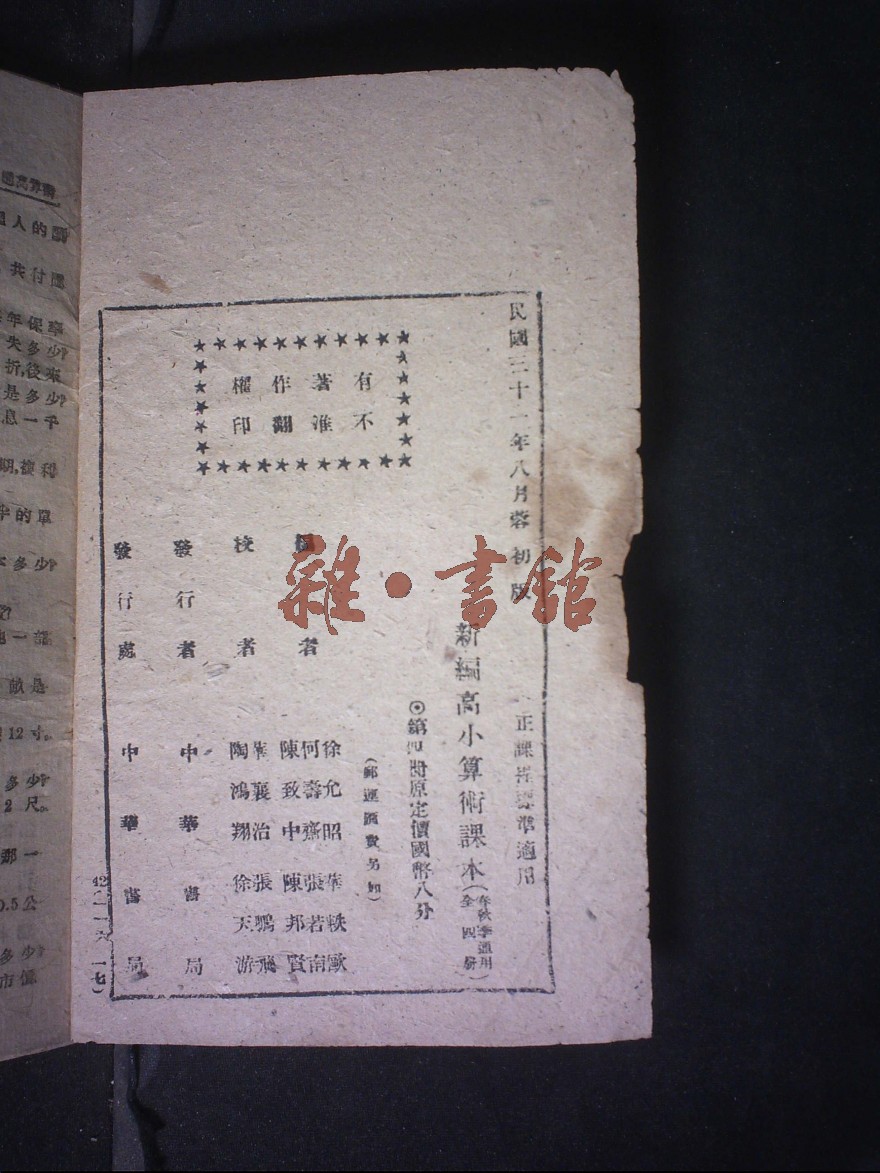 民國三十一年八月蓉初版
正課程標準適用
新編高小算術課本(春秋季適用 全四册)
◎第四册原定價國幣八分
(郵運匯費另加)
有著作權
不准翻印
編者
徐允昭 華軼歐
何壽齋 張若南
陳致中 陳邦賢
校者
華襄治 張鵬飛
陶鴻翔 徐天游
發行者 中華書局
發行處 中華書局
雜·書館
人的
共付
年保
失多少?
折,後來
是多少?
息一千
期,複利
半的單
多少?
12寸。
多少?
2尺。
那一
0.5公
多少?